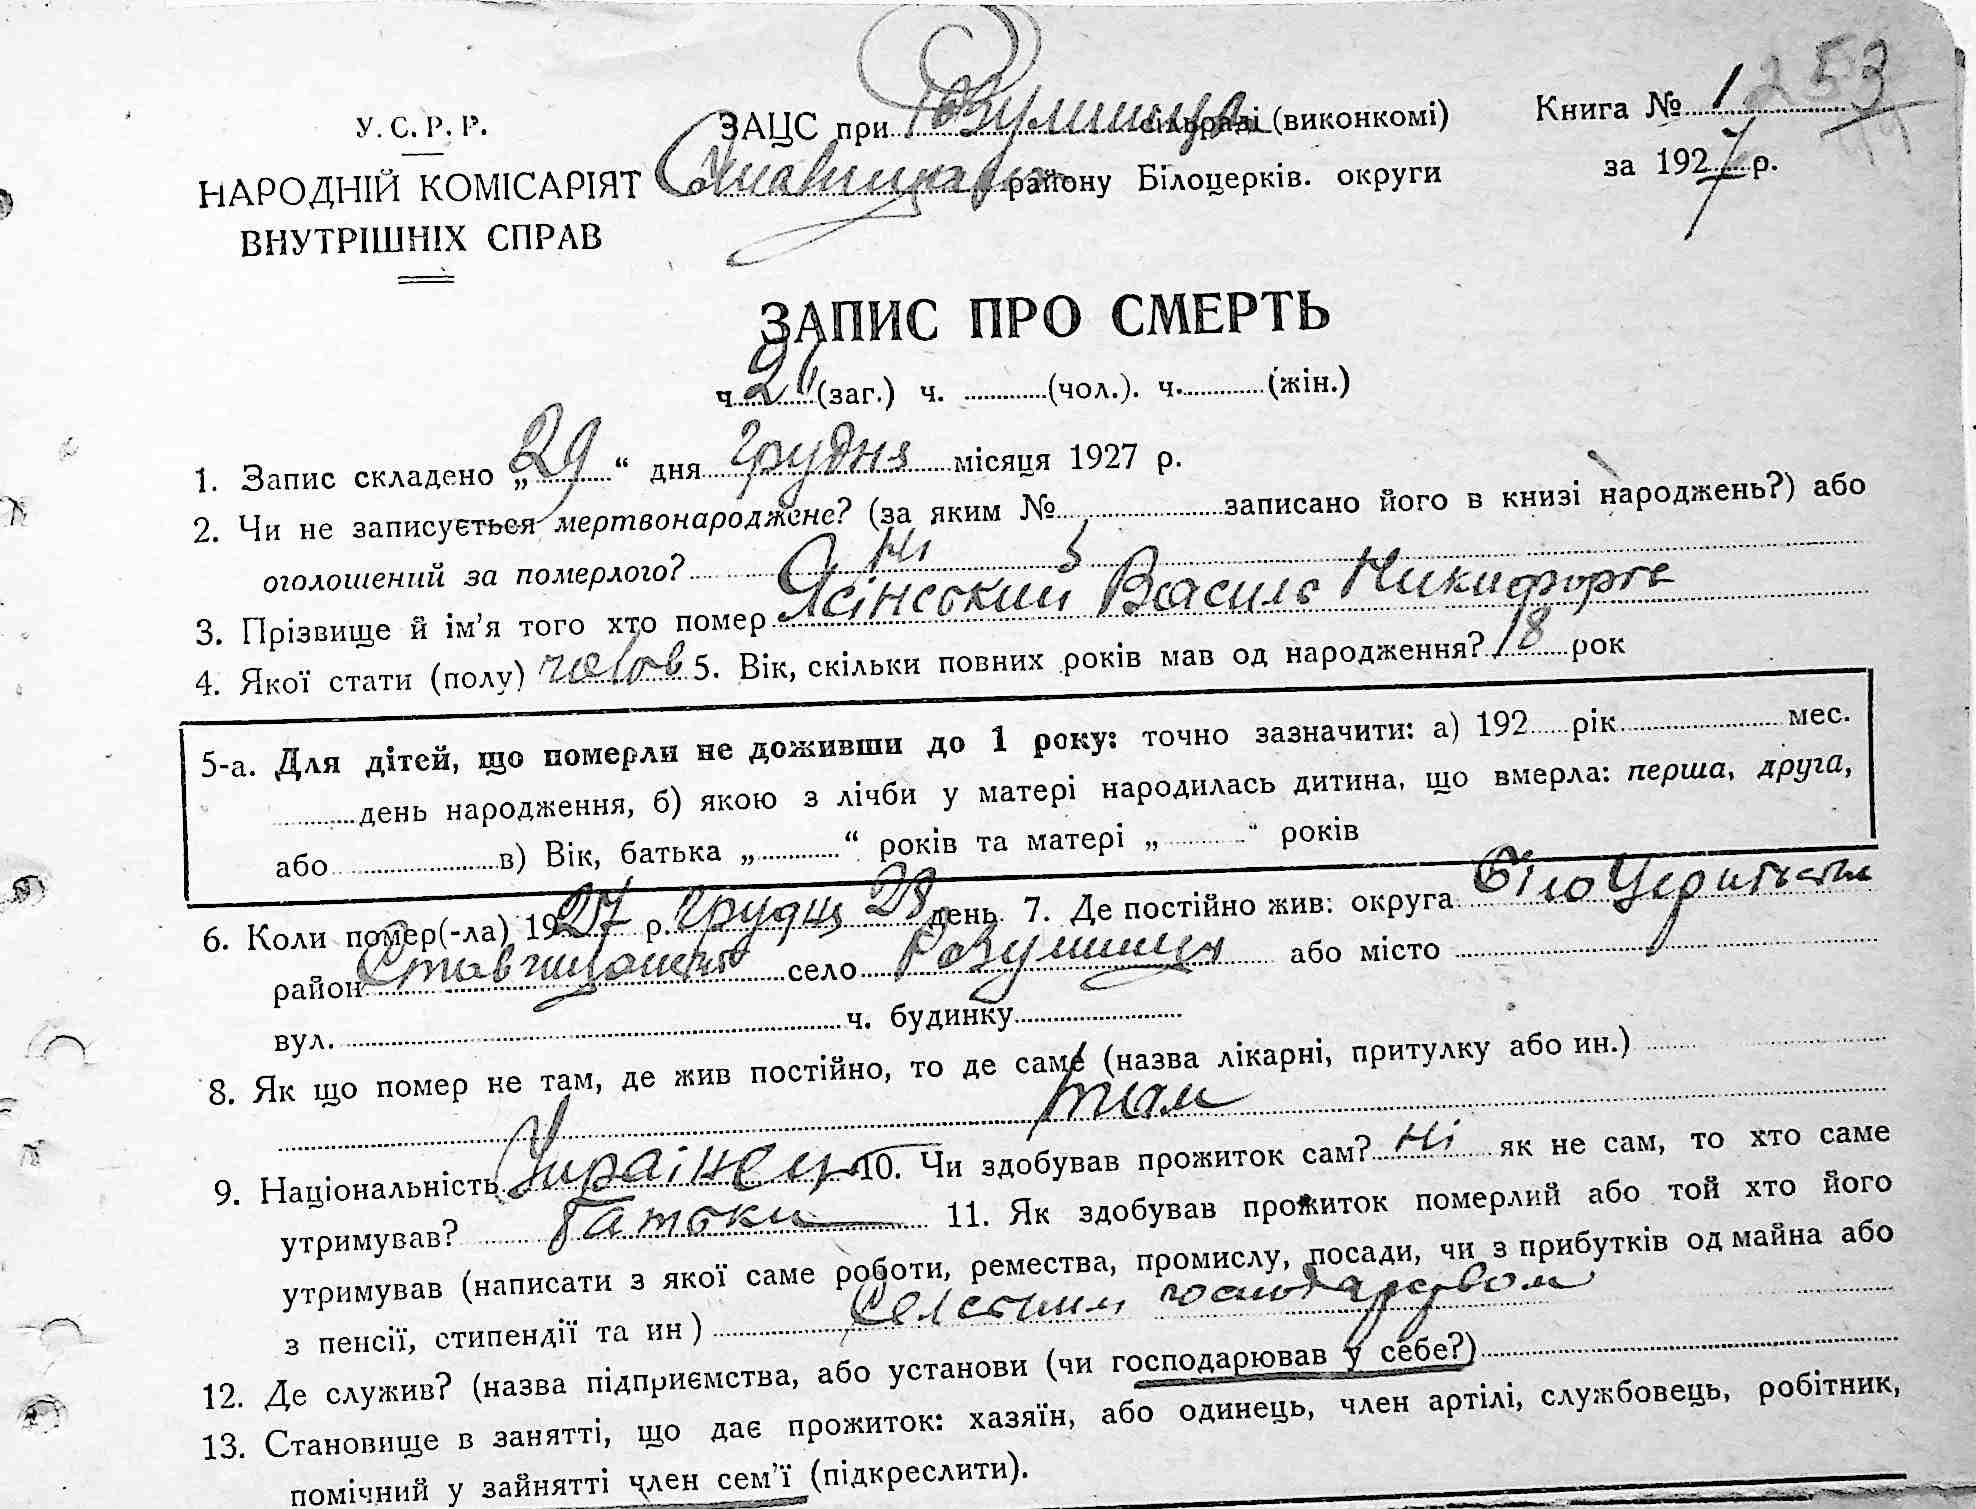 253
У. С. Р. Р.
НАРОДНІЙ КОМІСАРІЯТ
ВНУТРІШНІХ СПРАВ
ЗАЦС при Розумниц. сільраді (виконкомі)
Ставищан. району Білоцерків. округи
Книга № 1
за 1927 р.
ЗАПИС ПРО СМЕРТЬ
ч. (заг.) ч. (чол.). ч. (жін.)
1. Запис складено „29“ дня грудня місяця 1927 р.
2. Чи не записується мертвонароджене? (за яким № записано його в книзі народжень?) або
оголошений за померлого? Ні
3. Прізвище й ім’я того хто помер Ясінський Василь Никифоров
4. Якої стати (полу) чолов 5. Вік, скільки повних років мав од народження? 18 рок
5-а. Для дітей, що померли не доживши до 1 року: точно зазначити: а) 192 рік мес.
день народження, б) якою з лічби у матері народилась дитина, що вмерла: перша, друга,
або в) Вік, батька „ “ років та матері „ “ років
6. Коли помер(-ла) 1927 р. грудня 28 день 7. Де постійно жив: округа Білоцерківська
район Ставищанськ село Розумниця або місто
вул. ч. будинку
8. Як що помер не там, де жив постійно, то де саме (назва лікарні, притулку або ин.)
там
9. Національність Українец 10. Чи здобував прожиток сам? Ні як не сам, то хто саме
утримував? батьки 11. Як здобував прожиток померлий або той хто його
утримував (написати з якої саме роботи, ремества, промислу, посади, чи з прибутків од майна або
з пенсії, стипендії та ин) Сельским господарством
12. Де служив? (назва підприємства, або установи (чи господарював у себе?)
13. Становище в занятті, що дає прожиток: хазяїн, або одинець, член артілі, службовець, робітник,
помічний у зайнятті член сем’ї (підкреслити).